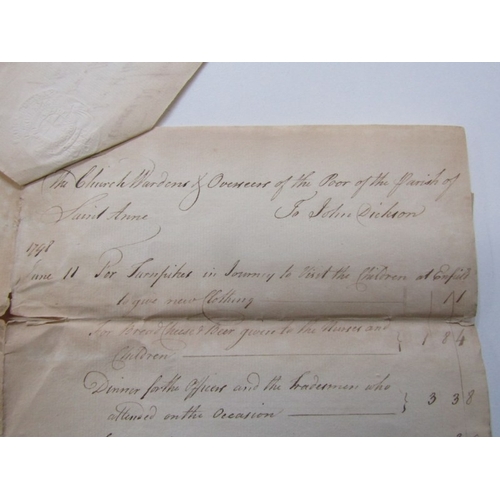 The Church Wardens & Overseers of the Poor of the Parish of
Saint Anne To John Dickson
1798
une 11 For Turnpikes in Journey to Visit the Children at Enfield
to give new Clothing 11
For Bread Cheese & Beer given to the Nurses and
Children 1 8 4
Dinner for the Officers and the Tradesmen who
attended on the Occasion 3 3 8